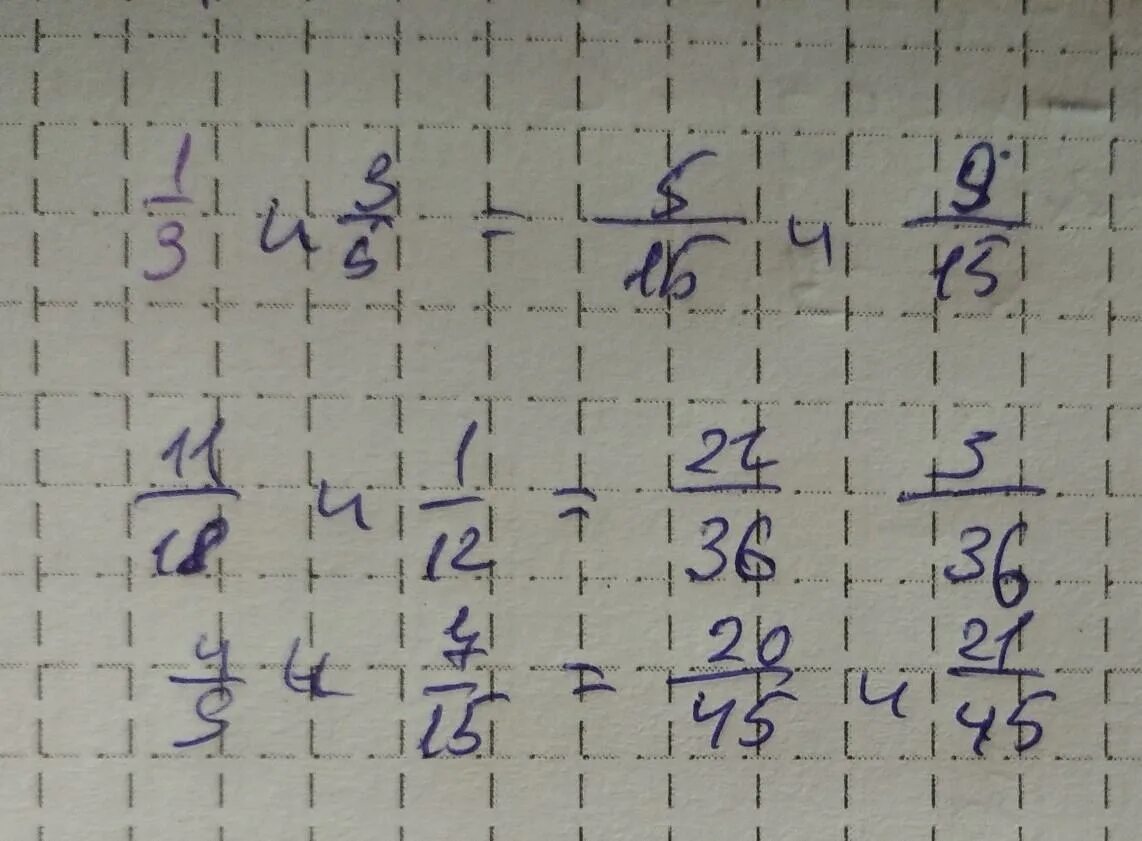 1/3 и 3/5 = 5/15 и 9/15
11/18 и 1/12 = 22/36 3/36
4/9 и 7/15 = 20/45 и 21/45